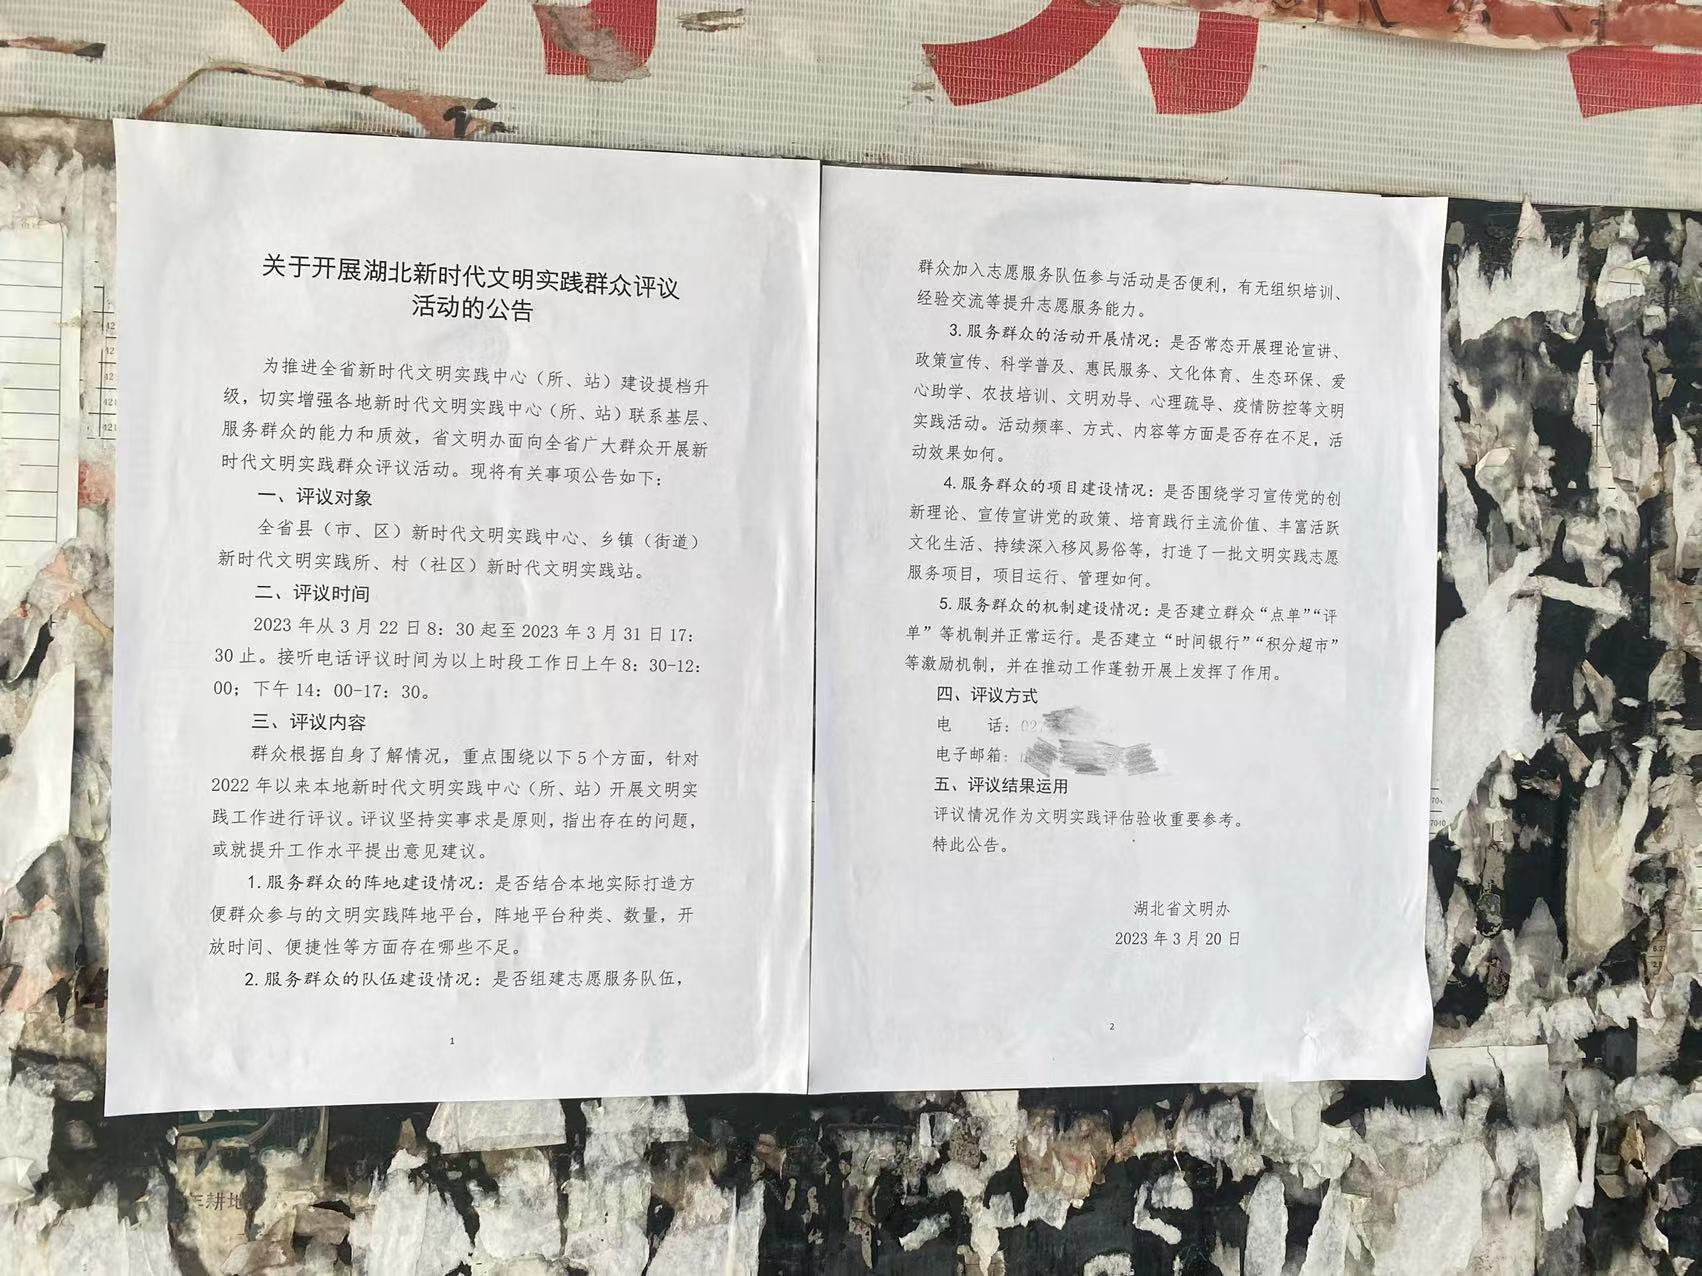 关于开展湖北新时代文明实践群众评议
活动的公告
为推进全省新时代文明实践中心（所、站）建设提档升
级，切实增强各地新时代文明实践中心（所、站）联系基层、
服务群众的能力和质效，省文明办面向全省广大群众开展新
时代文明实践群众评议活动。现将有关事项公告如下：
一、评议对象
全省县（市、区）新时代文明实践中心、乡镇（街道）
新时代文明实践所、村（社区）新时代文明实践站。
二、评议时间
2023 年从 3 月 22 日 8：30 起至 2023 年 3 月 31 日 17：
30 止。接听电话评议时间为以上时段工作日上午 8：30-12：
00；下午 14：00-17：30。
三、评议内容
群众根据自身了解情况，重点围绕以下 5 个方面，针对
2022 年以来本地新时代文明实践中心（所、站）开展文明实
践工作进行评议。评议坚持实事求是原则，指出存在的问题，
或就提升工作水平提出意见建议。
1.服务群众的阵地建设情况：是否结合本地实际打造方
便群众参与的文明实践阵地平台，阵地平台种类、数量，开
放时间、便捷性等方面存在哪些不足。
2.服务群众的队伍建设情况：是否组建志愿服务队伍，
1
群众加入志愿服务队伍参与活动是否便利，有无组织培训、
经验交流等提升志愿服务能力。
3.服务群众的活动开展情况：是否常态开展理论宣讲、
政策宣传、科学普及、惠民服务、文化体育、生态环保、爱
心助学、农技培训、文明劝导、心理疏导、疫情防控等文明
实践活动。活动频率、方式、内容等方面是否存在不足，活
动效果如何。
4.服务群众的项目建设情况：是否围绕学习宣传党的创
新理论、宣传宣讲党的政策、培育践行主流价值、丰富活跃
文化生活、持续深入移风易俗等，打造了一批文明实践志愿
服务项目，项目运行、管理如何。
5.服务群众的机制建设情况：是否建立群众“点单”“评
单”等机制并正常运行。是否建立“时间银行”“积分超市”
等激励机制，并在推动工作蓬勃开展上发挥了作用。
四、评议方式
电 话：02
电子邮箱：
五、评议结果运用
评议情况作为文明实践评估验收重要参考。
特此公告。
湖北省文明办
2023 年 3 月 20 日
2